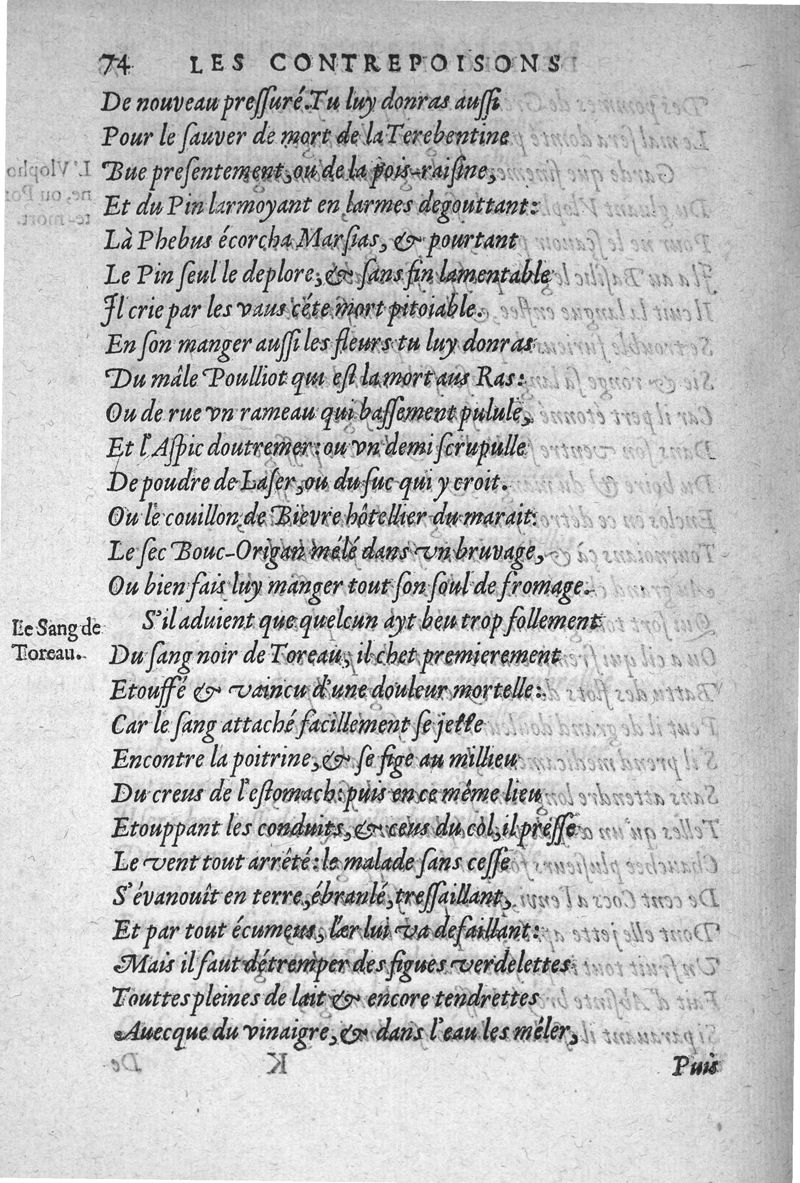 74 LES CONTREPOISONS
De nouveau preſſuré. Tu luy donras auſſi
Pour le ſauver de mort de la Terebentine
Bue preſentement, ou de la pois-raiſine,
Et du Pin larmoyant en larmes degouttant:
Là Phebus écorcha Marſias, & pourtant
Le Pin ſeul le deplore, & ſans fin lamentable
Il crie par les vaus céte mort pitoiable.
En ſon manger auſſi les fleurs tu luy donras
Du mâle Poulliot qui eſt la mort aus Ras:
Ou de rue vn rameau qui baſſement pulule,
Et l'Aſpic doutremer: ou vn demi ſcrupulle
De poudre de Laſer, ou du ſuc qui y croit.
Ou le couillon de Bievre hôtellier du marait:
Le ſec Bouc-Origan mélé dans vn bruvage,
Ou bien fais luy manger tout ſon ſoul de fromage.
Le Sang de Toreau.
S'il aduient que quelcun ayt beu trop follement
Du ſang noir de Toreau, il chet premierement
Etouffé & vaincu d'une douleur mortelle:
Car le ſang attaché facillement ſe jette
Encontre la poitrine, & ſe fige au millieu
Du creus de l'eſtomach: puis en ce même lieu
Etouppant les conduits, & ceus du còl, il preſſe
Le vent tout arrêté: le malade ſans ceſſe
S'évanouît en terre, ébranlé, treſſaillant,
Et par tout écumeus, l'ær lui va defaillant:
Mais il faut détremper des figues verdelettes
Touttes pleines de lait & encore tendrettes
Auecque du vinaigre, & dans l'eau les méler,
Puis